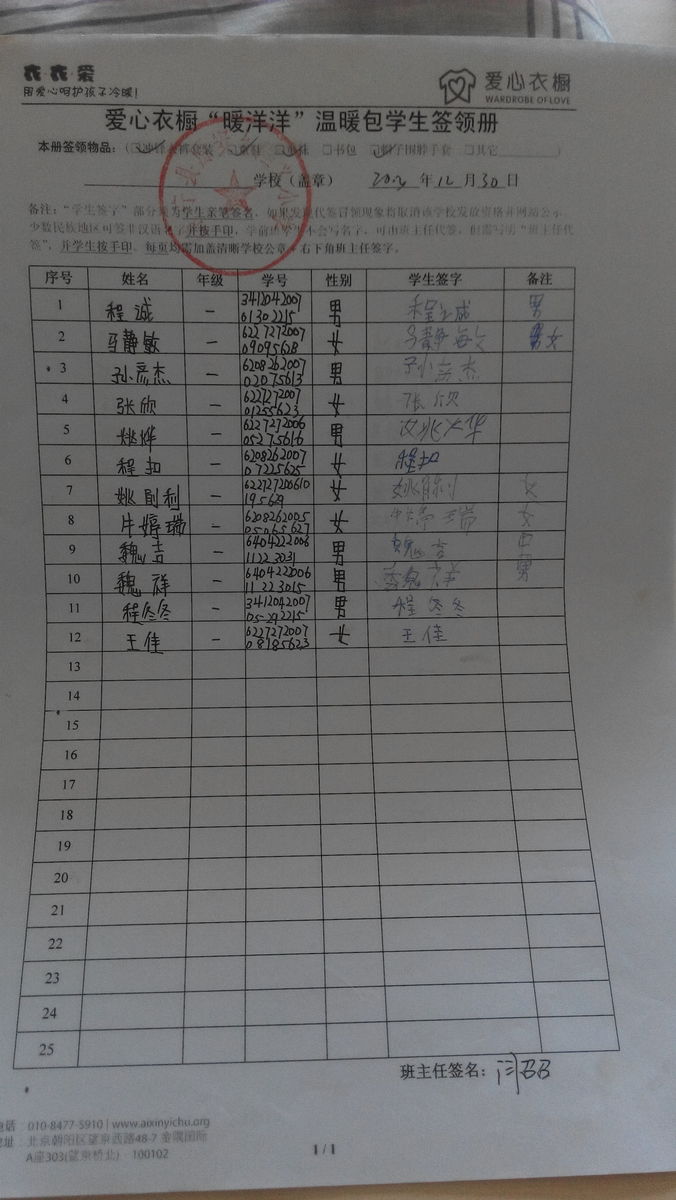 衣·衣·爱
用爱心呵护孩子冷暖!
爱心衣橱
WARDROBE OF LOVE
爱心衣橱“暖洋洋”温暖包学生签领册
本册签领物品:
□书包 帽子围脖手套 □其它
学校(盖章) 年12月30日
备注:“学生签字”部分须为学生亲笔签名,如果发现代签冒领现象将取消该学校发放资格并网站公示,
少数民族地区可签非汉语名字并按手印,学前班学生不会写名字,可由班主任代签,但需写明“班主任代
签”,并学生按手印、每页均需加盖清晰学校公章,右下角班主任签字。
序号 姓名 年级 学号 性别 学生签字 备注
1 程诚 一 3412042007 01302215 男 程诚 男
2 马静敏 一 6227272007 09095628 女 马静敏 女
3 孙彦杰 一 6208262007 02075613 男 孙彦杰
4 张欣 一 6227272007 01255623 女 张欣
5 姚烨 一 6227272006 05275616 男 姚烨
6 程扣 一 6208262007 07225625 女 程扣
7 姚 利 一 622727200610 195629 女 女
8 牛婷瑞 一 6208262005 05065627 女 牛婷瑞 女
9 魏吉 一 6404222006 11223031 男 魏吉
10 魏祥 一 6404222006 11223015 男 魏祥 男
11 程冬冬 一 3412042007 05292215 男 程冬冬
12 王佳 一 6227272007 08185623 女 王佳
13
14
15
16
17
18
19
20
21
22
23
24
25
班主任签名:
电话:010-8477-5910 | www.aixinyichu.org
地址:北京朝阳区望京西路48-7 金隅国际
A座303(望京桥北) 100102
1 / 1